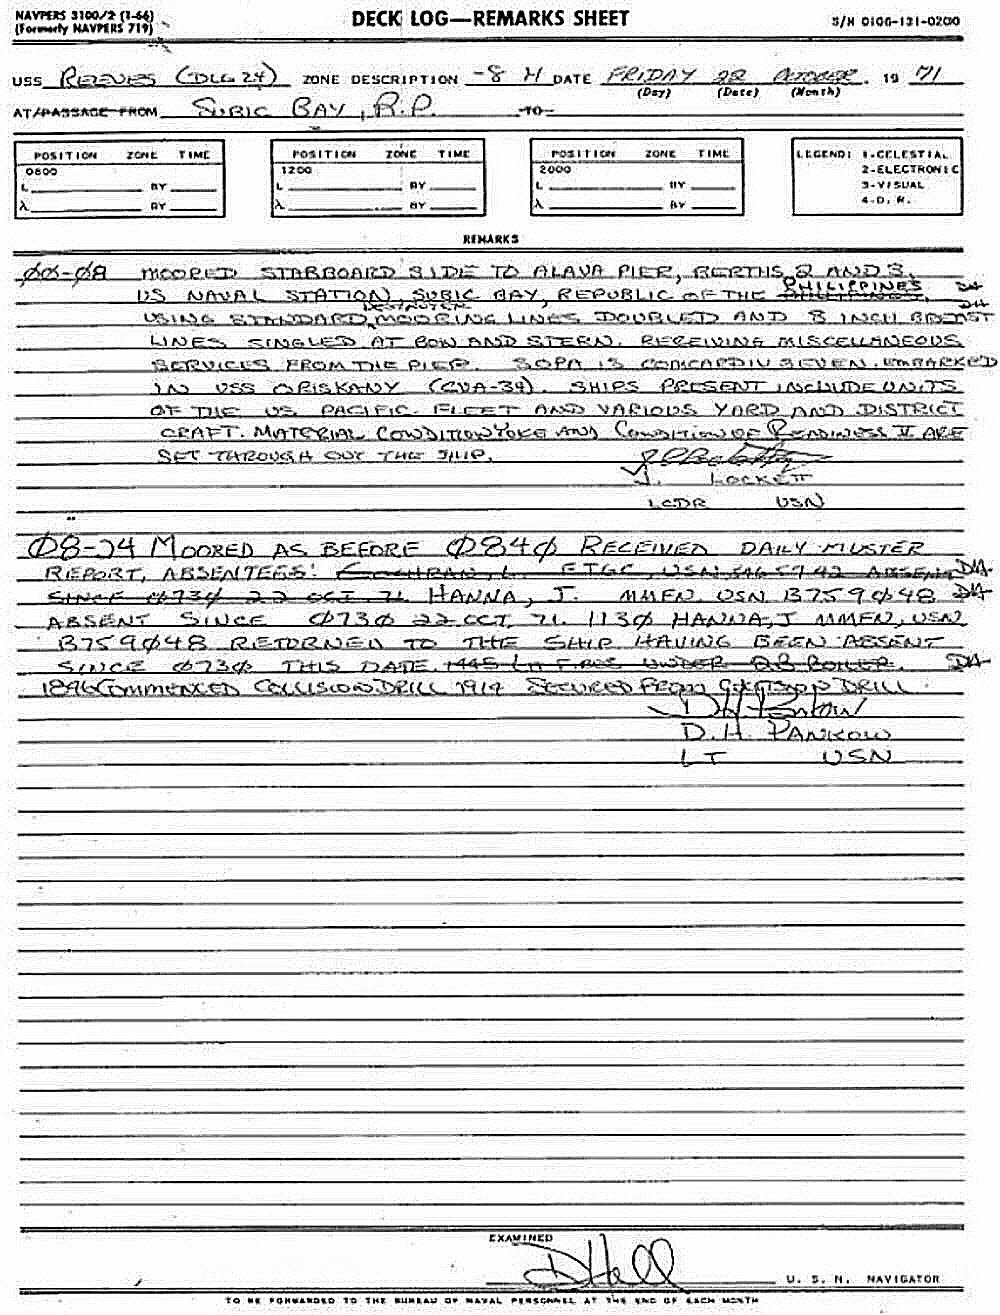 NAVPERS 3100/2 (1-66)
(Formerly NAVPERS 719)
DECK LOG—REMARKS SHEET
S/N 0106-131-0200
USS REEVES (DLG 24) ZONE DESCRIPTION -8 H DATE FRIDAY 22 OCTOBER . 19 71
(Day) (Date) (Month)
AT/PASSAGE FROM SUBIC BAY, R.P. TO
POSITION ZONE TIME
0800
L BY
λ BY
POSITION ZONE TIME
1200
L BY
λ BY
POSITION ZONE TIME
2000
L BY
λ BY
LEGEND: 1-CELESTIAL
2-ELECTRONIC
3-VISUAL
4-D. R.
REMARKS
ØØ-Ø8 MOORED STARBOARD SIDE TO ALAVA PIER, BERTHS 2 AND 3,
US NAVAL STATION SUBIC BAY, REPUBLIC OF THE PHILIPPINES, DH
USING STANDARD DESTROYER MOORING LINES DOUBLED AND 8 INCH BREAST DH
LINES SINGLED AT BOW AND STERN. RECEIVING MISCELLANEOUS
SERVICES FROM THE PIER. SOPA IS COMCARDIV SEVEN. EMBARKED
IN USS ORISKANY (CVA-34). SHIPS PRESENT INCLUDE UNITS
OF THE US PACIFIC FLEET AND VARIOUS YARD AND DISTRICT
CRAFT. MATERIAL CONDITION YOKE AND CONDITION OF READINESS V ARE
SET THROUGH OUT THE SHIP.
J. LOCKETT
LCDR USN
Ø8-24 MOORED AS BEFORE Ø84Ø RECEIVED DAILY MUSTER
REPORT, ABSENTEES: COCHRAN, L. ETGC, USN, ABSENT DH
SINCE Ø73Ø 22 OCT 71 HANNA, J. MMFN, USN B759Ø48 DH
ABSENT SINCE Ø73Ø 22 OCT. 71. 113Ø HANNA, J MMFN, USN
B759Ø48 RETURNED TO THE SHIP HAVING BEEN ABSENT
SINCE Ø73Ø THIS DATE. 1445 LIT FIRES UNDER 2B BOILER. DH
COMMENCED COLLISION DRILL 1914 SECURED FROM COLLISION DRILL.
D.H. PANKOW
LT USN
EXAMINED
D Hall
U. S. N. NAVIGATOR
TO BE FORWARDED TO THE BUREAU OF NAVAL PERSONNEL AT THE END OF EACH MONTH